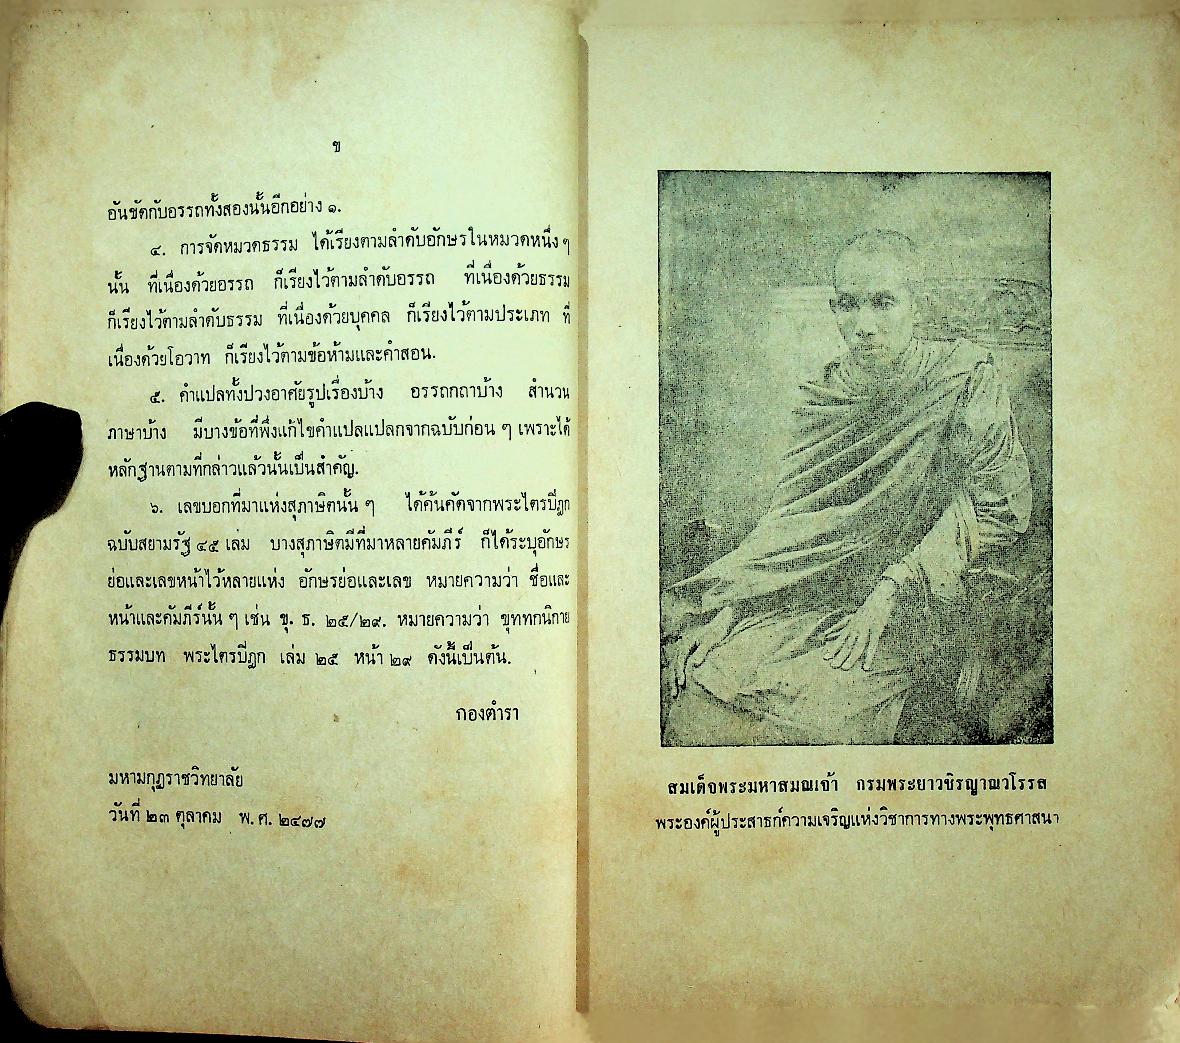 ข
อันขัดกับอรรถทั้งสองนั้นอีกอย่าง ๑.
๔. การจัดหมวดธรรม ได้เรียงตามลำดับอักษรในหมวดหนึ่ง ๆ
นั้น ที่เนื่องด้วยอรรถ ก็เรียงไว้ตามลำดับอรรถ ที่เนื่องด้วยธรรม
ก็เรียงไว้ตามลำดับธรรม ที่เนื่องด้วยบุคคล ก็เรียงไว้ตามประเภท ที่
เนื่องด้วยโอวาท ก็เรียงไว้ตามข้อห้ามและคำสอน.
๕. คำแปลทั้งปวงอาศัยรูปเรื่องบ้าง อรรถกถาบ้าง สำนวน
ภาษาบ้าง มีบางข้อที่พึ่งแก้ไขคำแปลแปลกจากฉบับก่อน ๆ เพราะได้
หลักฐานตามที่กล่าวแล้วนั้นเป็นสำคัญ.
๖. เลขบอกที่มาแห่งสุภาษิตนั้น ๆ ได้ค้นคัดจากพระไตรปิฎก
ฉบับสยามรัฐ ๔๕ เล่ม บางสุภาษิตมีที่มาหลายคัมภีร์ ก็ได้ระบุอักษร
ย่อและเลขหน้าไว้หลายแห่ง อักษรย่อและเลข หมายความว่า ชื่อและ
หน้าและคัมภีร์นั้น ๆ เช่น ขุ. ธ. ๒๕/๒๙. หมายความว่า ขุททกนิกาย
ธรรมบท พระไตรปิฎก เล่ม ๒๕ หน้า ๒๙ ดังนี้เป็นต้น.
กองตำรา
มหามกุฏราชวิทยาลัย
วันที่ ๒๓ ตุลาคม พ. ศ. ๒๔๗๗
สมเด็จพระมหาสมณเจ้า กรมพระยาวชิรญาณวโรรส
พระองค์ผู้ประสาธก์ความเจริญแห่งวิชาการทางพระพุทธศาสนา